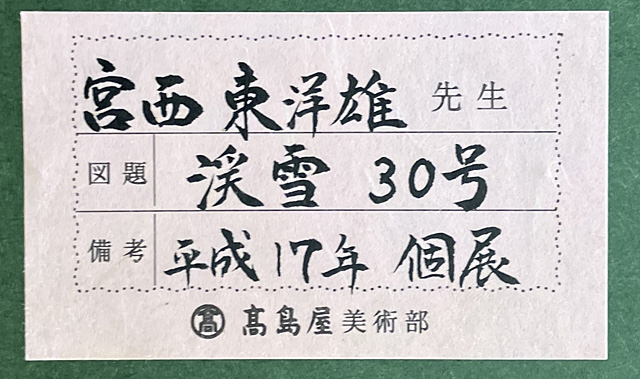 宮西 東洋雄 先生
図題 渓雪 30号
備考 平成17年 個展
髙 髙島屋美術部